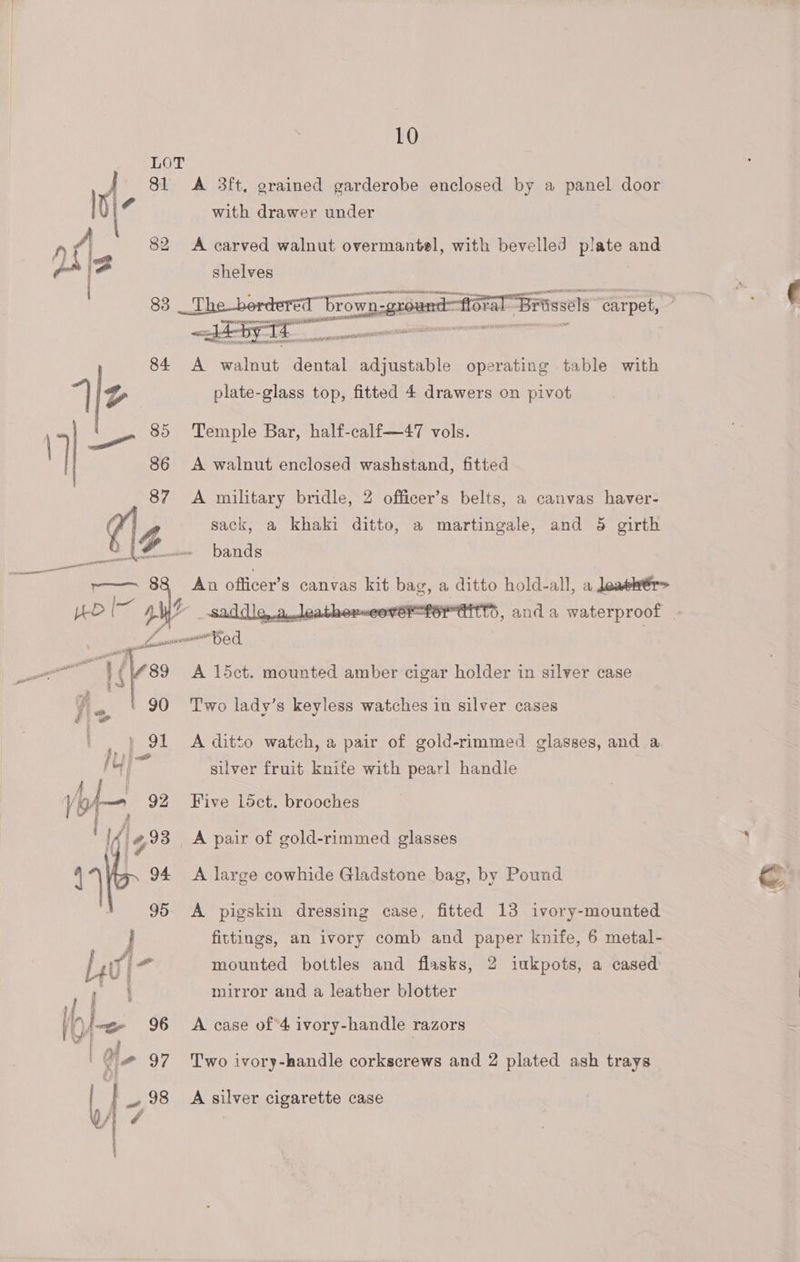 10
LOT
81 A 3ft. grained garderobe enclosed by a panel door
with drawer under
82 A carved walnut overmantel, with bevelled plate and
shelves
83 The bordered brown-ground floral Brussels carpet,
14 by 14
84 A walnut dental adjustable operating table with
plate-glass top, fitted 4 drawers on pivot
85 Temple Bar, half-calf—47 vols.
86 A walnut enclosed washstand, fitted
87 A military bridle, 2 officer's belts, a canvas haver-
sack, a khaki ditto, a martingale, and 5 girth
bands
88 An officer's canvas kit bag, a ditto hold-all, a leather
saddle, a leather cover for ditto, and a waterproof
bed
89 A 15ct. mounted amber cigar holder in silver case
90 Two lady's keyless watches in silver cases
91 A ditto watch, a pair of gold-rimmed glasses, and a
silver fruit knife with pearl handle
92 Five 15ct. brooches
93 A pair of gold-rimmed glasses
94 A large cowhide Gladstone bag, by Pound
95 A pigskin dressing case, fitted 13 ivory-mounted
fittings, an ivory comb and paper knife, 6 metal-
mounted bottles and flasks, 2 inkpots, a cased
mirror and a leather blotter
96 A case of 4 ivory-handle razors
97 Two ivory-handle corkscrews and 2 plated ash trays
98 A silver cigarette case